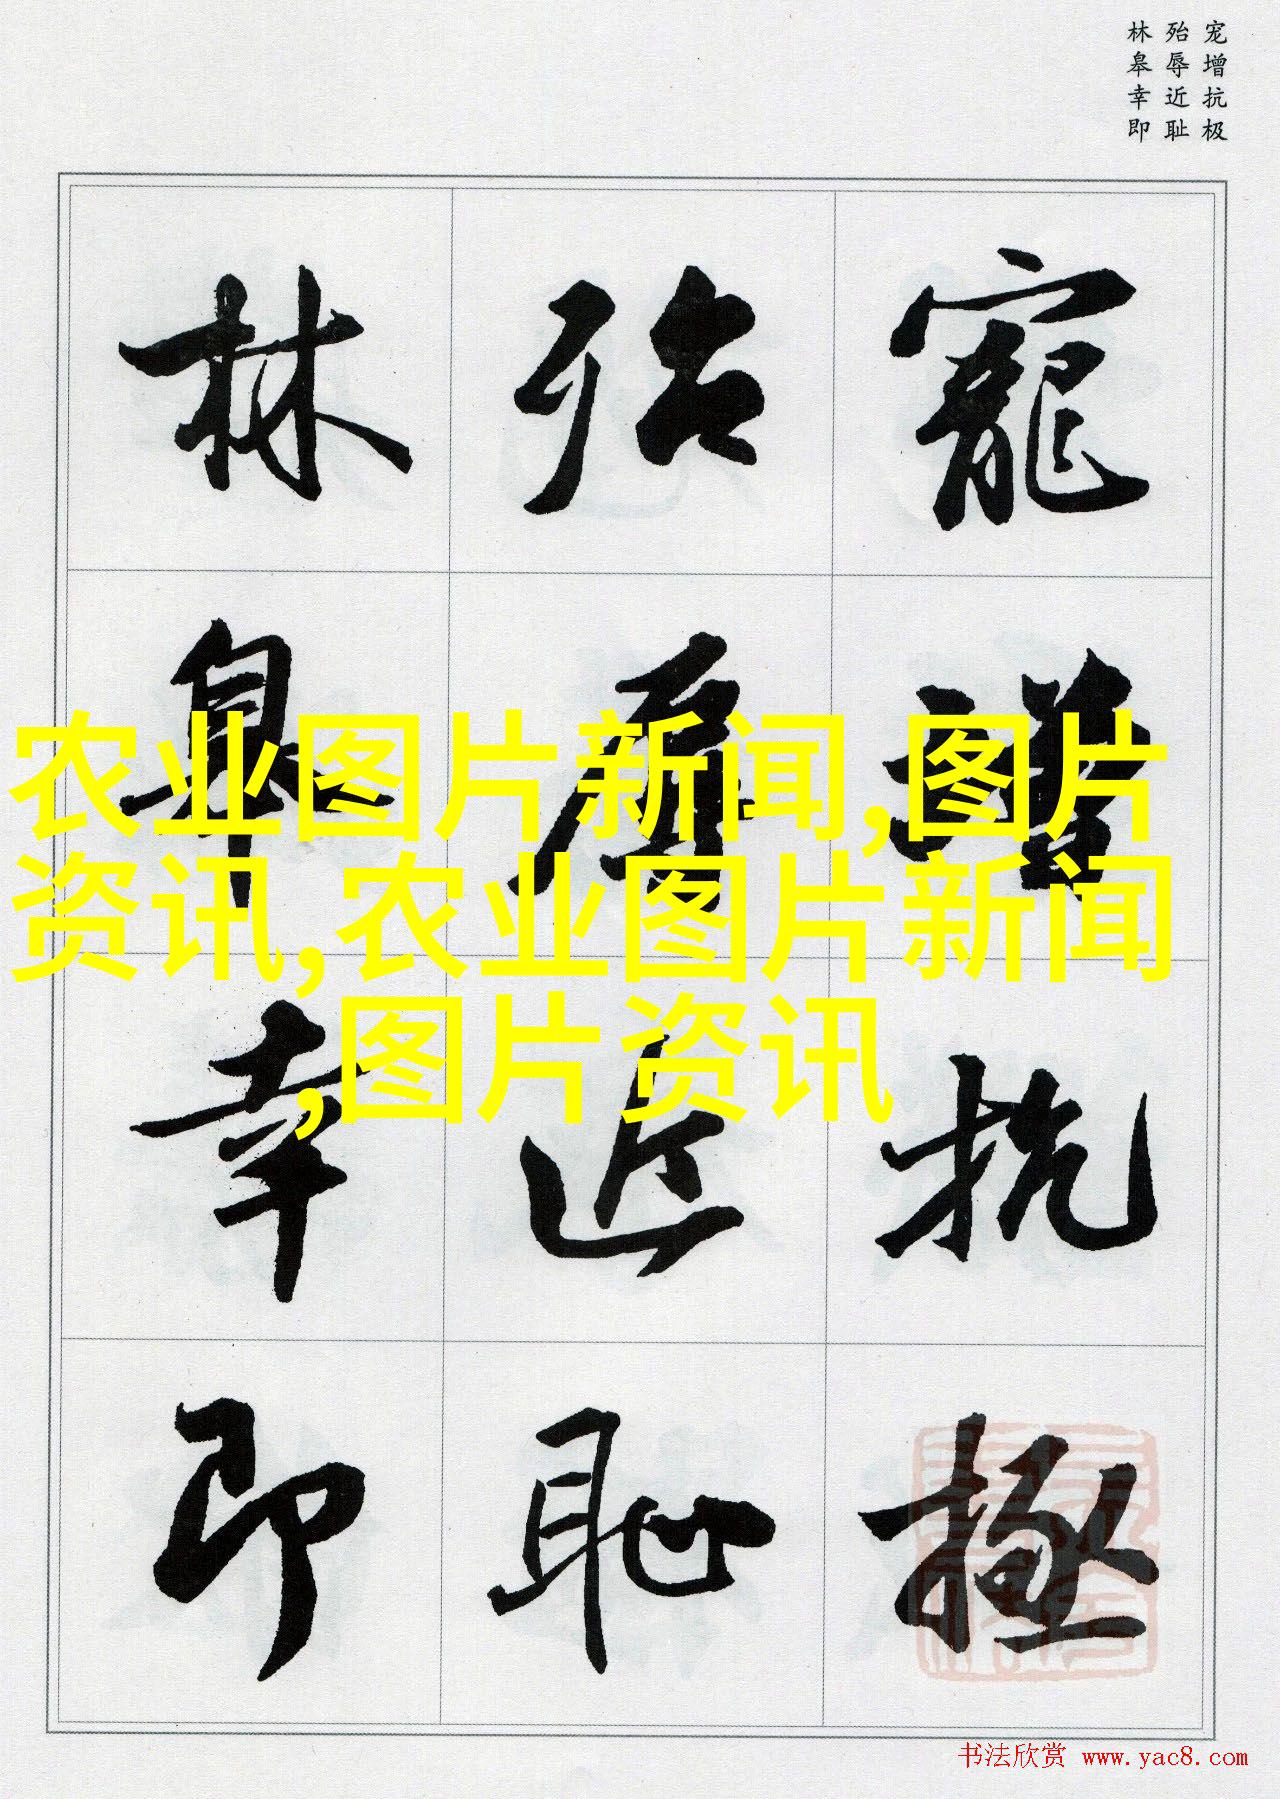 宠增抗极
殆辱近耻
林皋幸即
寵
增
抗
極
殆
辱
近
耻
林
皋
幸
即
农业图片新闻,图片
资讯,农业图片新闻
,图片资讯
书法欣赏 www.yac8.com